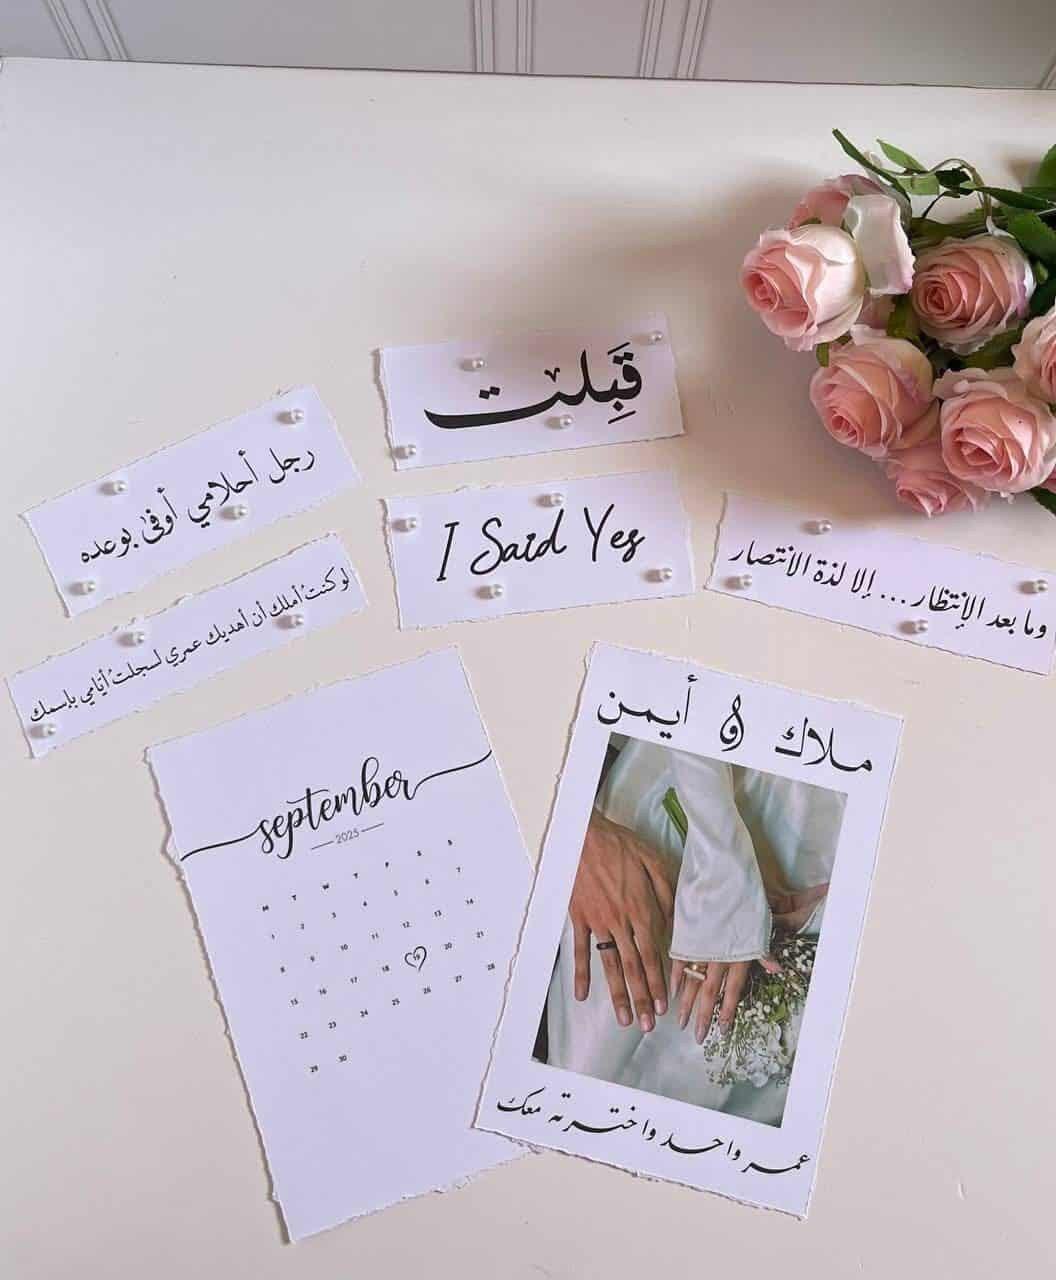 قَبِلت
رجل أحلامي أوفىٰ بوعده
I Said Yes
لو كنتُ أملك أن أهديك عمري لسجلتُ أيّامي بإسمك
وما بعد الإنتظار... إلا لذة الانتصار
september
2025
M T W T F S S
1 2 3 4 5 6 7
8 9 10 11 12 13 14
15 16 17 18 19 20 21
22 23 24 25 26 27 28
29 30
ملاك & أيمن
عمر واحد واخترته معك